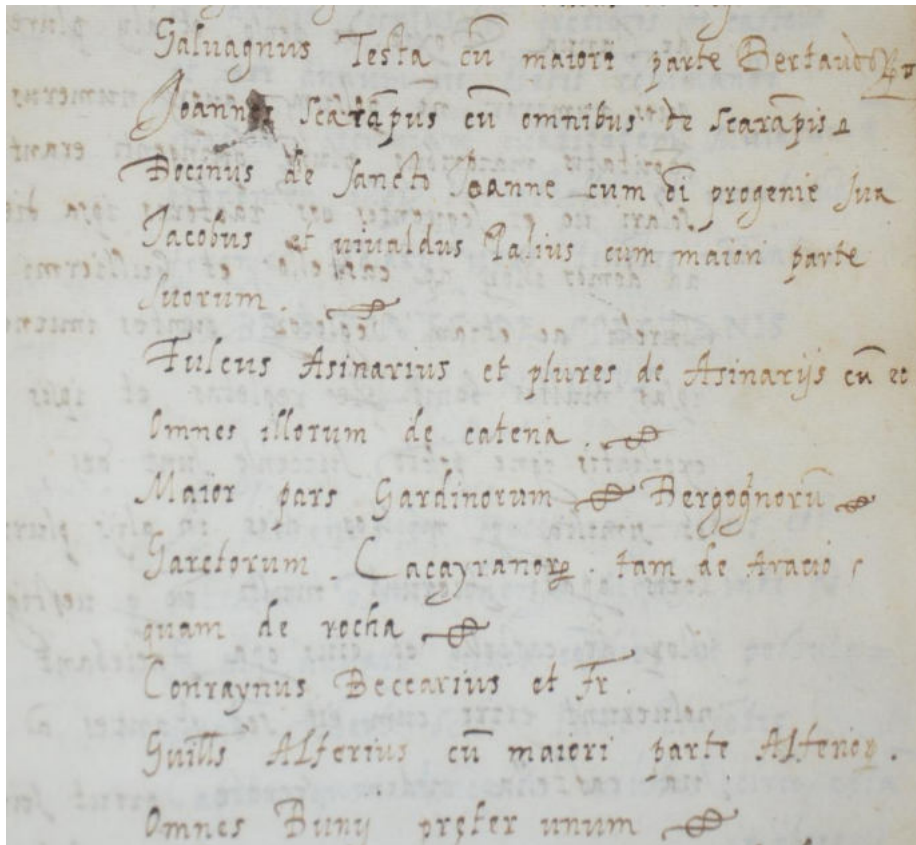 Galuagnus Testa cū maiori parte Bertaudoꝝ
Joannes scarāpus cū omnibus de scarāpis
Bocinus de sancto Joanne cum oī progenie sua
Jacobus et uiualdus Palius cum maiori parte
suorum.
Fulcus Asinarius et plures de Asinarijs cū
Omnes illorum de catena.
Maior pars Gardinorum Bergognorū
Garetorum. Cacayranoꝝ. tam de Aracio
quam de rocha
Conraynus Beccarius et Fr.
Guills Alferius cū maiori parte Alferioꝝ.
Omnes Bunij pręter unum